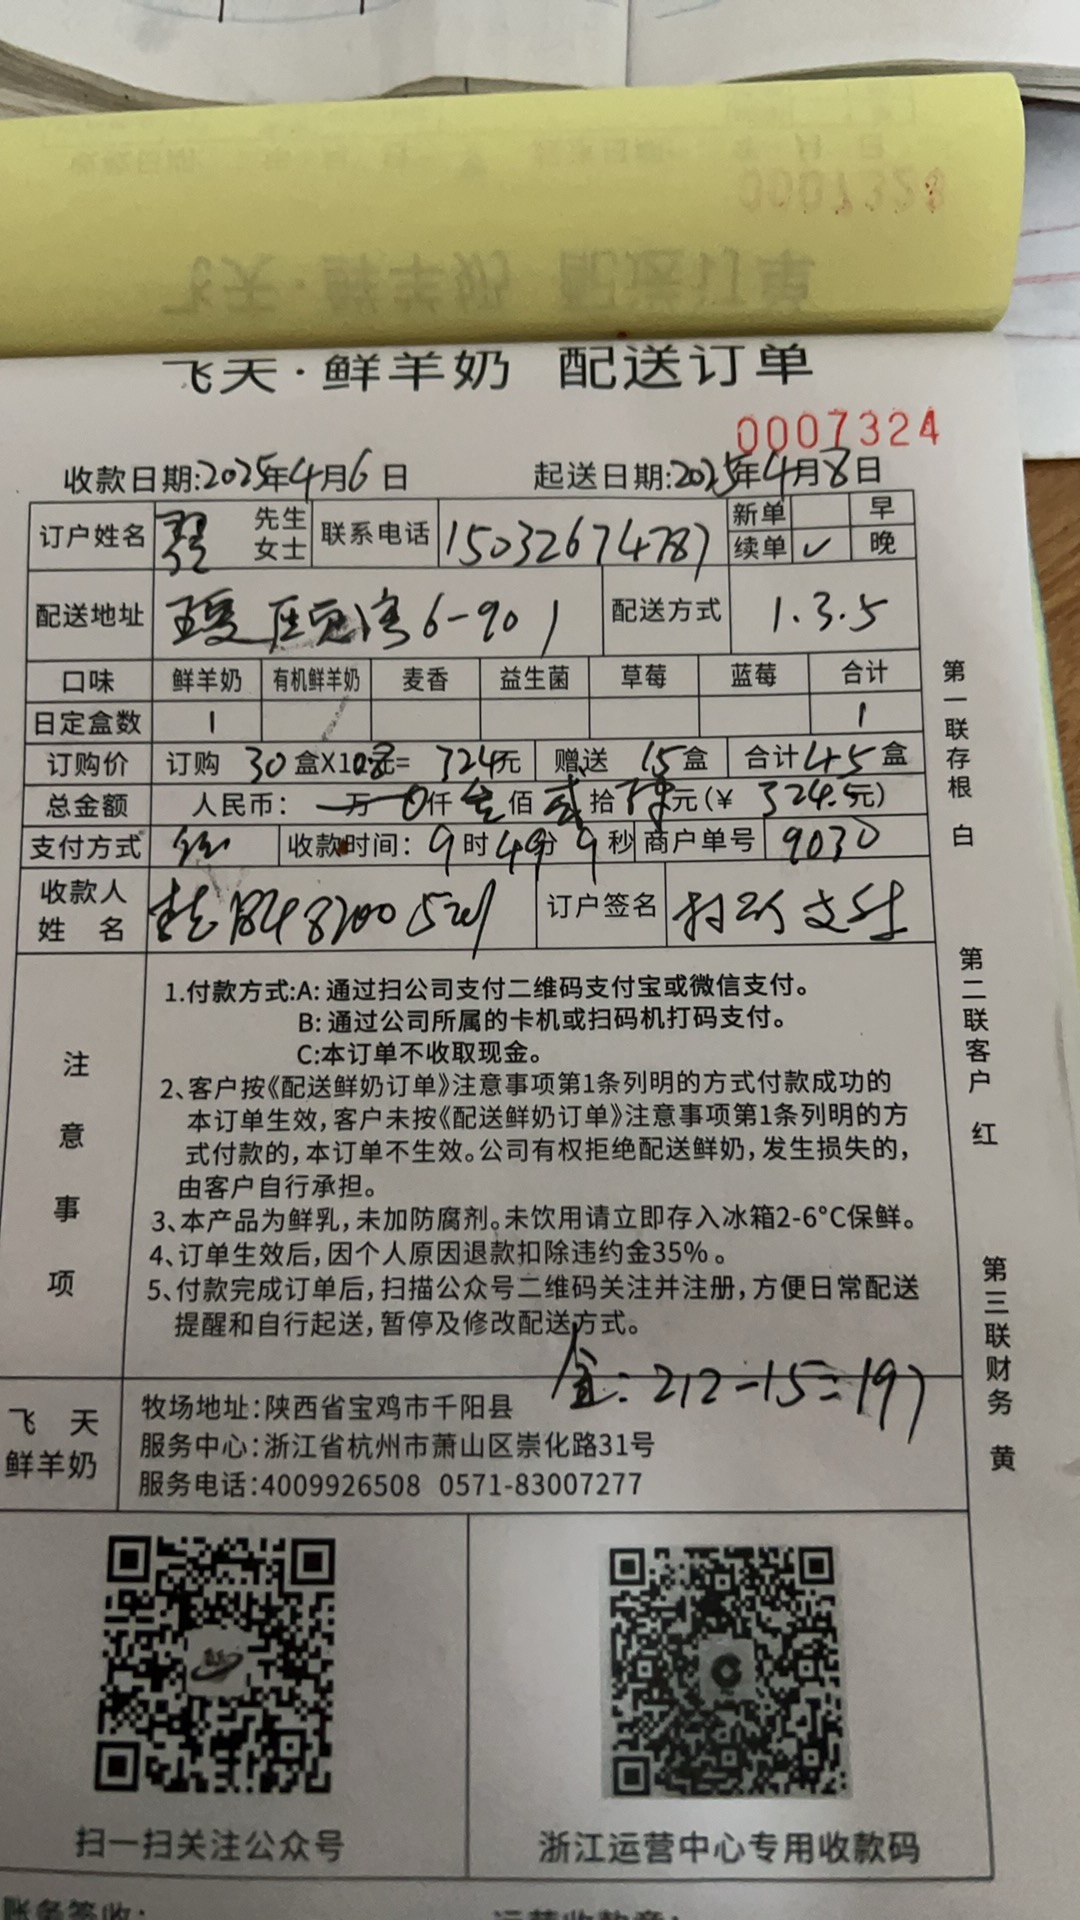 飞天·鲜羊奶 配送订单
0007324
收款日期:2025年4月6日 起送日期:2025年4月8日
订户姓名 先生 女士 联系电话 15032674787 新单 早
续单 ✓ 晚
配送地址 6-901 配送方式 1.3.5
口味 鲜羊奶 有机鲜羊奶 麦香 益生菌 草莓 蓝莓 合计
日定盒数 1 1
订购价 订购 30盒X10.8元= 324元 赠送 15盒 合计45盒
总金额 人民币: 万 0仟 叁佰 贰拾 元(¥ 324.元)
支付方式 收款时间: 9时49分9秒 商户单号 9030
收款人
姓 名 订户签名 扫码支付
注意事项
1.付款方式:A: 通过扫公司支付二维码支付宝或微信支付。
B: 通过公司所属的卡机或扫码机打码支付。
C:本订单不收取现金。
2、客户按《配送鲜奶订单》注意事项第1条列明的方式付款成功的
本订单生效,客户未按《配送鲜奶订单》注意事项第1条列明的方
式付款的,本订单不生效。公司有权拒绝配送鲜奶,发生损失的,
由客户自行承担。
3、本产品为鲜乳,未加防腐剂。未饮用请立即存入冰箱2-6°C保鲜。
4、订单生效后,因个人原因退款扣除违约金35%。
5、付款完成订单后,扫描公众号二维码关注并注册,方便日常配送
提醒和自行起送,暂停及修改配送方式。
金: 212-15=197
飞 天
鲜羊奶
牧场地址:陕西省宝鸡市千阳县
服务中心:浙江省杭州市萧山区崇化路31号
服务电话:4009926508 0571-83007277
扫一扫关注公众号 浙江运营中心专用收款码
第一联存根 白
第二联客户 红
第三联财务 黄